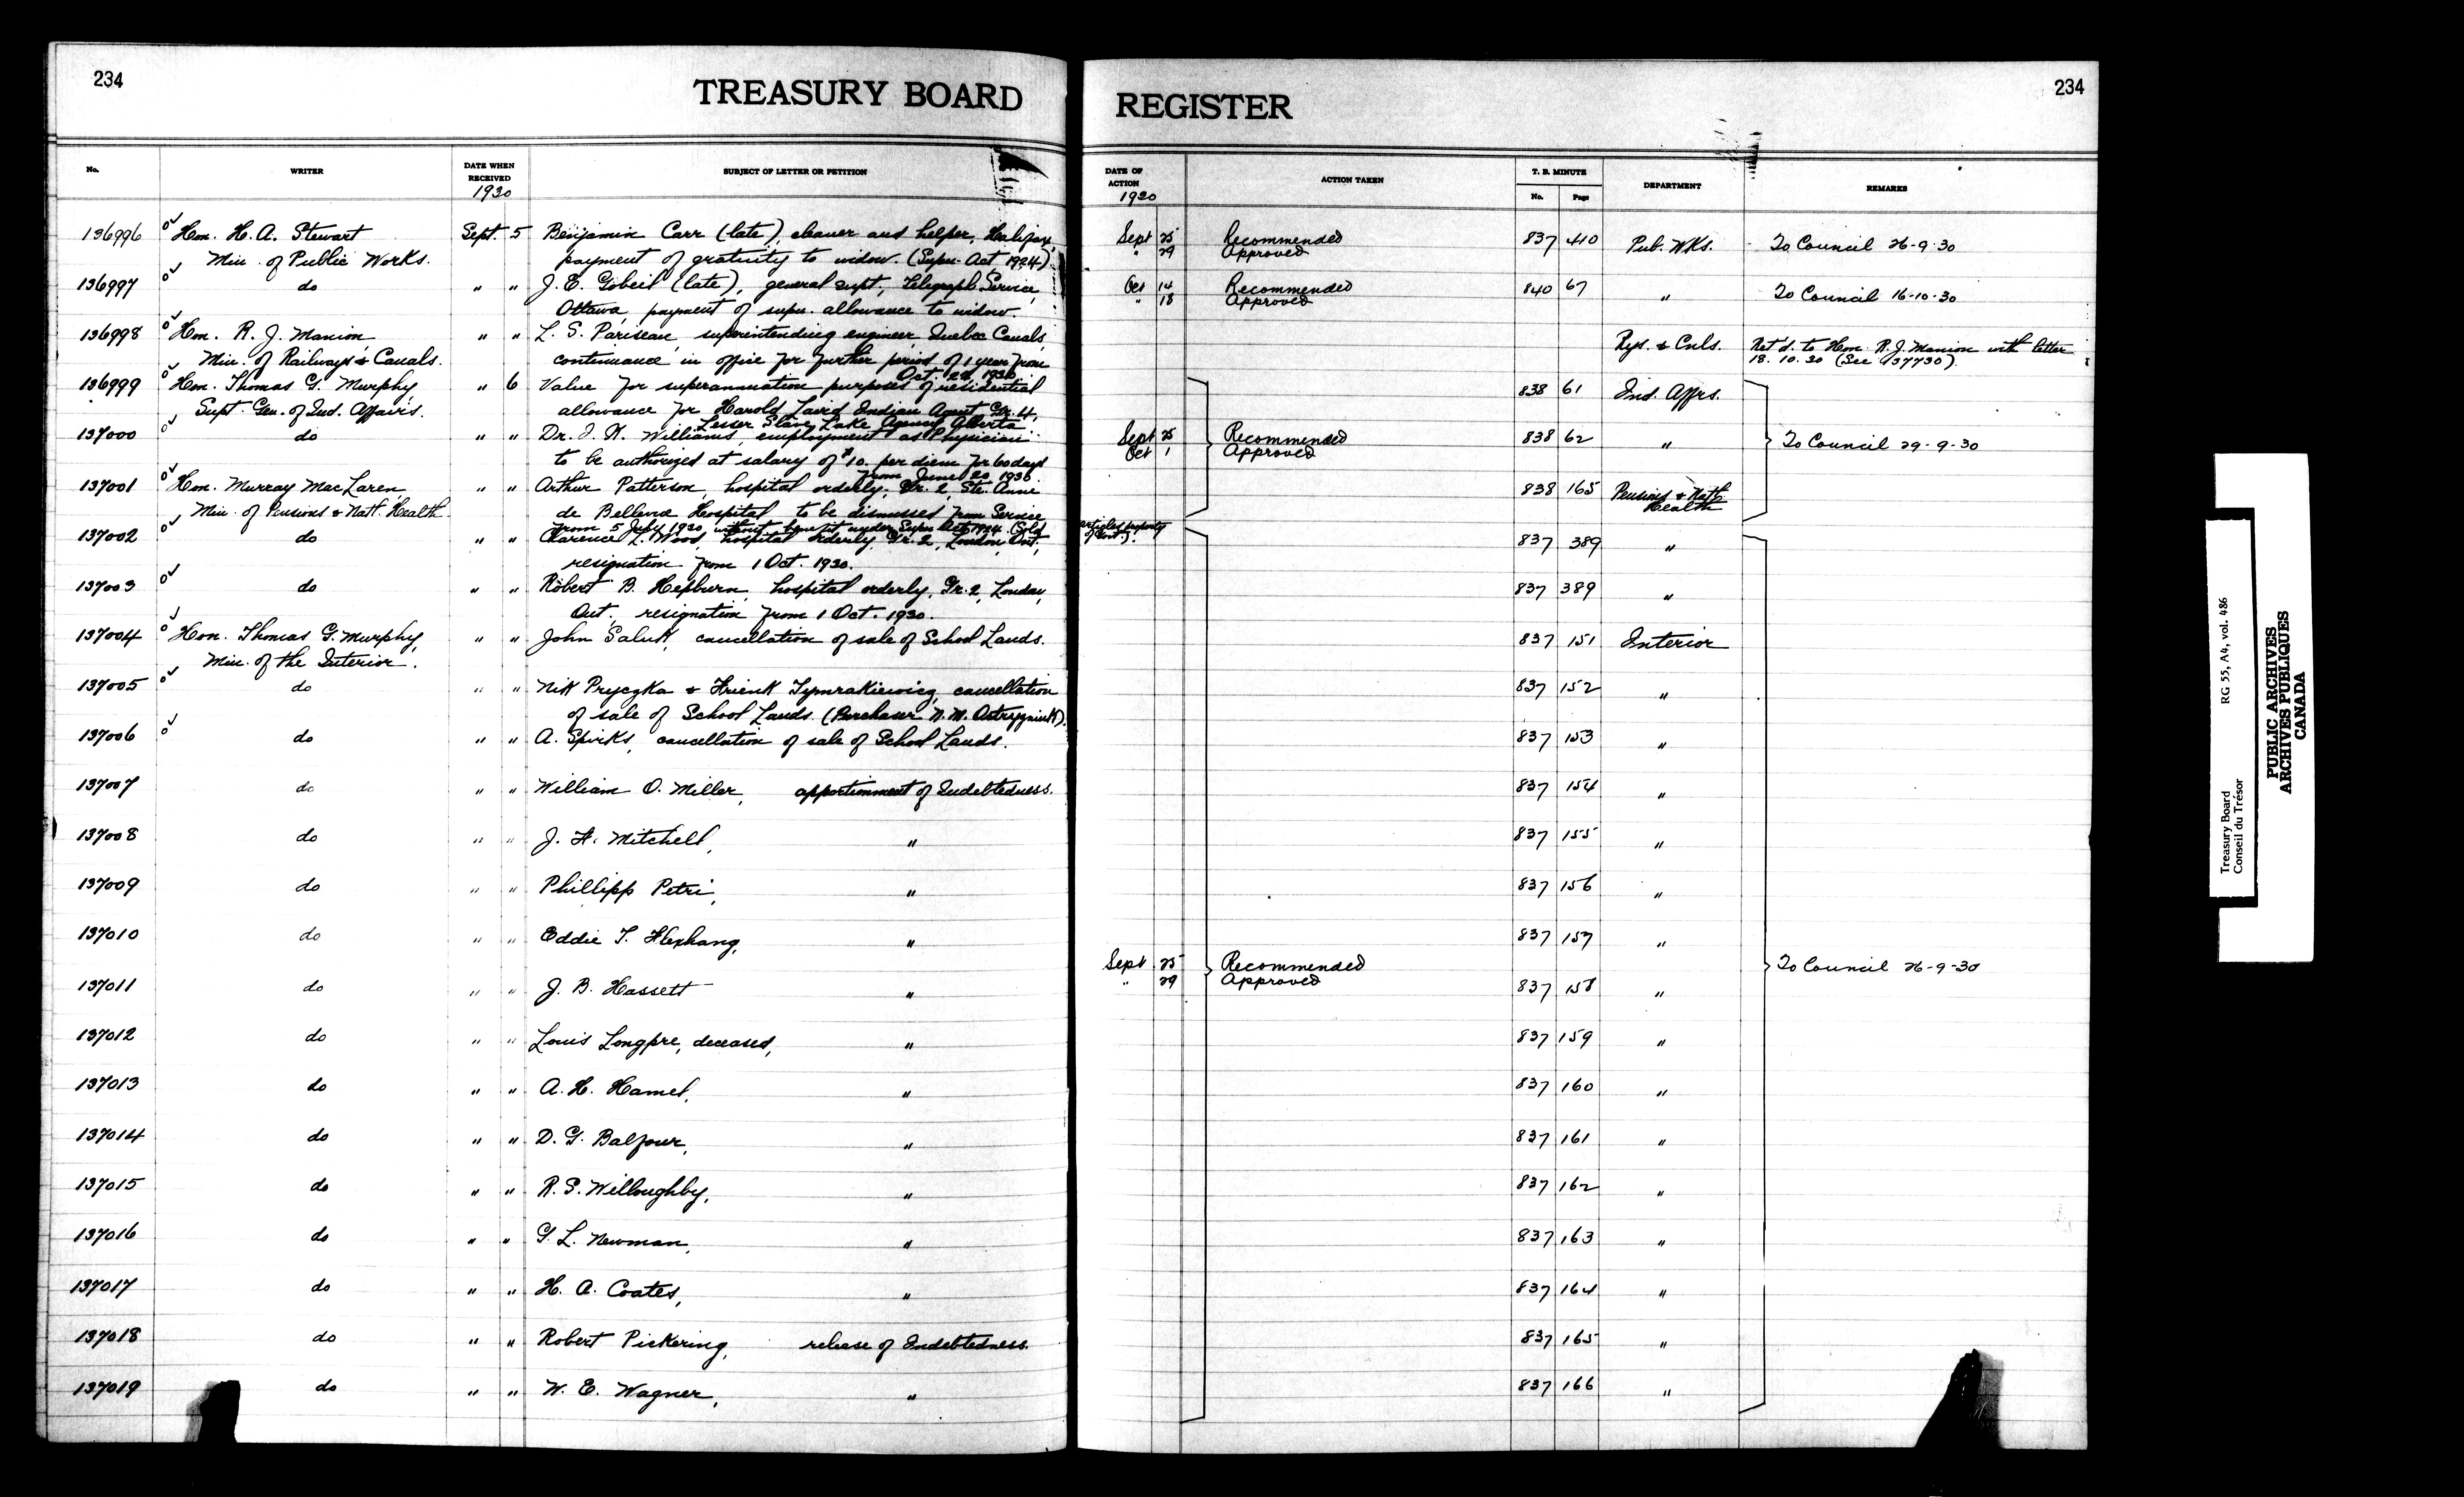 234
TREASURY BOARD
No.
WRITER
DATE WHEN RECEIVED
1930
SUBJECT OF LETTER OR PETITION
136996 Hon. H. A. Stewart Sept. 5 Benjamin Carr (late), cleaner and helper, Halifax,
Min. of Public Works. payment of gratuity to widow. (Supn. Act 1924)
136997 do " " J. E. Gobeil (late), general supt., Telegraph Service,
Ottawa, payment of supn. allowance to widow.
136998 Hon. R. J. Manion, " " L. S. Pariseau, superintending engineer, Quebec Canals,
Min. of Railways & Canals. continuance in office for further period of 1 year from
Oct. 1930.
136999 Hon. Thomas G. Murphy, " 6 Value for superannuation purposes of residential
Supt. Gen. of Ind. Affairs. allowance for Harold Laird Indian Agent Gr. 4,
Lesser Slave Lake Agency Alberta
137000 do " " Dr. Williams, employment as Physician
to be authorized at salary of $10. per diem for 60 days
from June 20 1930.
137001 Hon. Murray MacLaren, " " Arthur Patterson, hospital orderly, Gr. 2, Ste. Anne
Min. of Pensions & Natl. Health. de Bellevue Hospital to be dismissed from Service
from 5 July 1930 without benefit under Supn Act 1924. (Sold
137002 do " " Clarence L. Wood, hospital orderly, Gr. 2, London Ont.,
resignation from 1 Oct. 1930.
137003 do " " Robert B. Hepburn, hospital orderly, Gr. 2, London,
Ont., resignation from 1 Oct. 1930.
137004 Hon. Thomas G. Murphy, " " John Saluk, cancellation of sale of School Lands.
Min. of the Interior.
137005 do " " Nik Pryczka & cancellation
of sale of School Lands. (Purchaser N. M.
137006 do " " A. Spirks, cancellation of sale of School Lands.
137007 do " " William O. Miller, apportionment of Indebtedness.
137008 do " " J. H. Mitchell, "
137009 do " " Phillipp Petri, "
137010 do " " Eddie T. "
137011 do " " J. B. Hassett "
137012 do " " Louis Longpre, deceased, "
137013 do " " A. H. Hamel, "
137014 do " " D. G. Balfour, "
137015 do " " R. S. Willoughby, "
137016 do " " G. L. Newman, "
137017 do " " H. A. Coates, "
137018 do " " Robert Pickering, release of Indebtedness.
137019 do " " W. E. Wagner, "
REGISTER
234
DATE OF ACTION
1930
ACTION TAKEN
T. B. MINUTE
No.
Page
DEPARTMENT
REMARKS
Sept 25 Recommended 837 410 Pub. Wks. To Council 26-9-30
" 29 Approved
Oct 14 Recommended 840 67 " To Council 16-10-30
" 18 Approved
Rys. & Cnls. Ret'd. to Hon. R. J. Manion with letter
18.10.30 (See 137730).
838 61 Ind. Affrs.
Sept 25 Recommended 838 62 " To Council 29-9-30
Oct 1 Approved
838 165 Pensions & Natl.
Health
articles property
of Govt.).
837 389 "
837 389 "
837 151 Interior
837 152 "
837 153 "
837 154 "
837 155 "
837 156 "
837 157 "
Sept 25 Recommended To Council 26-9-30
" 29 Approved
837 158 "
837 159 "
837 160 "
837 161 "
837 162 "
837 163 "
837 164 "
837 165 "
837 166 "
Treasury Board RG 55, A4, vol. 486
Conseil du Trésor
PUBLIC ARCHIVES
ARCHIVES PUBLIQUES
CANADA